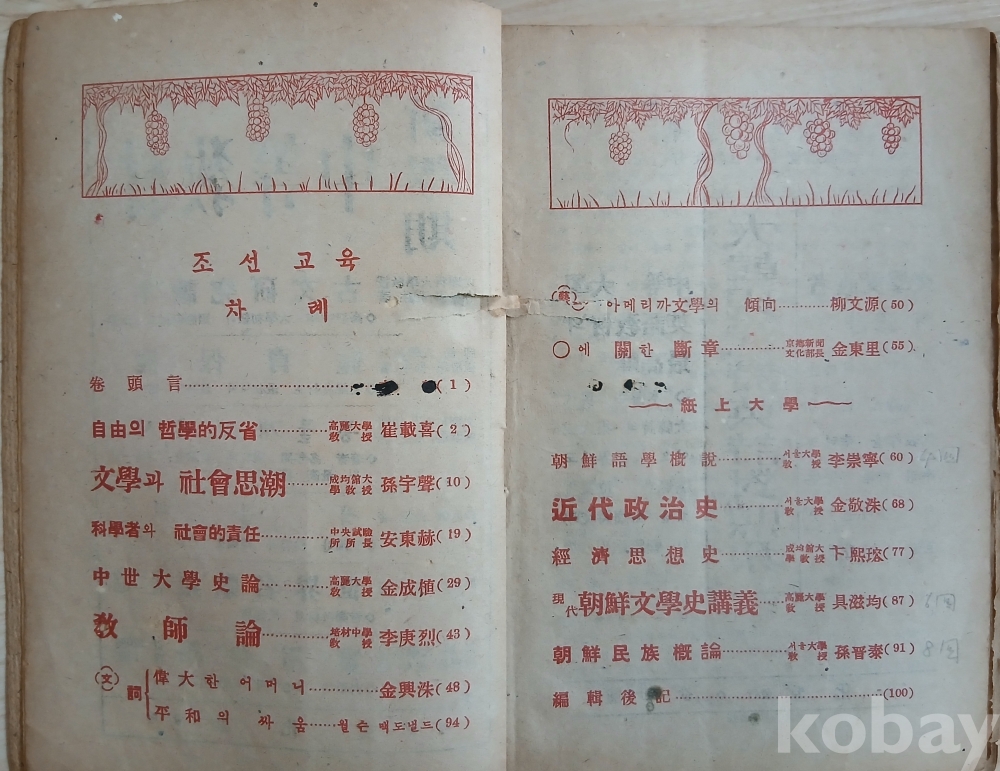 조선교육
차례
卷頭言……(1)
自由의 哲學的反省……高麗大學敎授 崔載喜(2)
文學과 社會思潮……成均館大學敎授 孫宇聲(10)
科學者와 社會的責任……中央試驗所所長 安東赫(19)
中世大學史論……高麗大學敎授 金成植(29)
敎師論……培材中學敎授 李庚烈(43)
文 詞 偉大한 어머니……金興洙(48)
平和의 싸움……윌슨 맥도낼드(94)
藝 아메리까文學의 傾向……柳文源(50)
○에 關한 斷章……京鄕新聞文化部長 金東里(55)
紙上大學
朝鮮語學概說……서울大學敎授 李崇寧(60)
近代政治史……서울大學敎授 金敬洙(68)
經濟思想史……成均館大學敎授 卞熙瑢(77)
現代朝鮮文學史講義……高麗大學敎授 具滋均(87)
朝鮮民族槪論……서울大學敎授 孫晋泰(91)
編輯後記……(100)
kobay